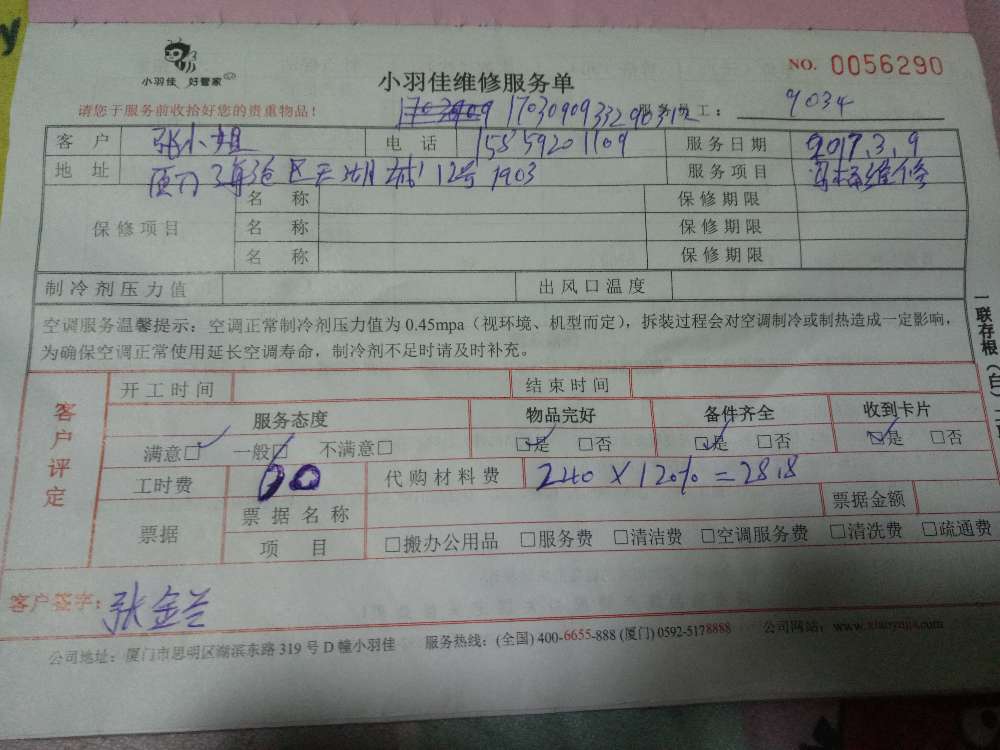 小羽佳 好管家
小羽佳维修服务单
NO. 0056290
请您于服务前收拾好您的贵重物品！
工： 9034
客户 张小姐 电话 15559201109 服务日期 2017.3.9
地址 海沧区天湖城 12号1903 服务项目 马桶维修
保修项目 名称 保修期限
名称 保修期限
名称 保修期限
制冷剂压力值 出风口温度
空调服务温馨提示：空调正常制冷剂压力值为0.45mpa（视环境、机型而定），拆装过程会对空调制冷或制热造成一定影响，
为确保空调正常使用延长空调寿命，制冷剂不足时请及时补充。
客户评定 开工时间 结束时间
服务态度 物品完好 备件齐全 收到卡片
满意□ 一般□ 不满意□ □是 □否 □是 □否 □是 □否
工时费 00 代购材料费 240×120%=288
票据 票据名称 票据金额
项目 □搬办公用品 □服务费 □清洁费 □空调服务费 □清洗费 □疏通费
客户签字：张金兰
公司地址：厦门市思明区湖滨东路319号D幢小羽佳 服务热线：(全国) 400-6655-888 (厦门) 0592-5178888 公司网站：www.xiaoyujia.com
一联存根（白）